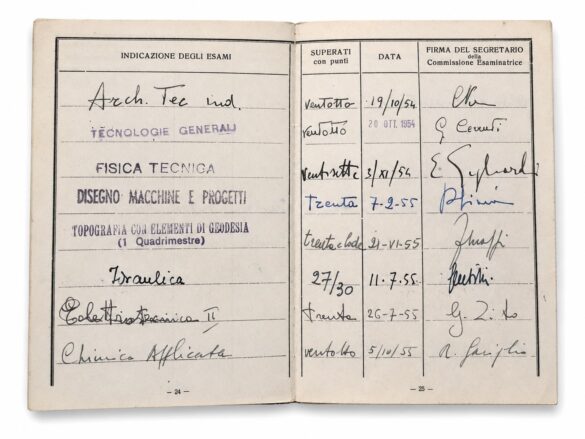 INDICAZIONE DEGLI ESAMI
SUPERATI con punti
DATA
FIRMA DEL SEGRETARIO
della
Commissione Esaminatrice
Arch. Tec ind. ventotto 19/10/54
TECNOLOGIE GENERALI ventotto 20 OTT. 1954 G. Cerruti
FISICA TECNICA ventisette 3/XI/54 E.
DISEGNO MACCHINE E PROGETTI trenta 7-2-55
TOPOGRAFIA CON ELEMENTI DI GEODESIA
(1 Quadrimestre) trenta e lode 21-VI-55
Idraulica 27/30 11.7.55
Elettrotecnica II trenta 26-7-55 G. Zito
Chimica Applicata ventotto 5/10/55
— 24 —
— 25 —